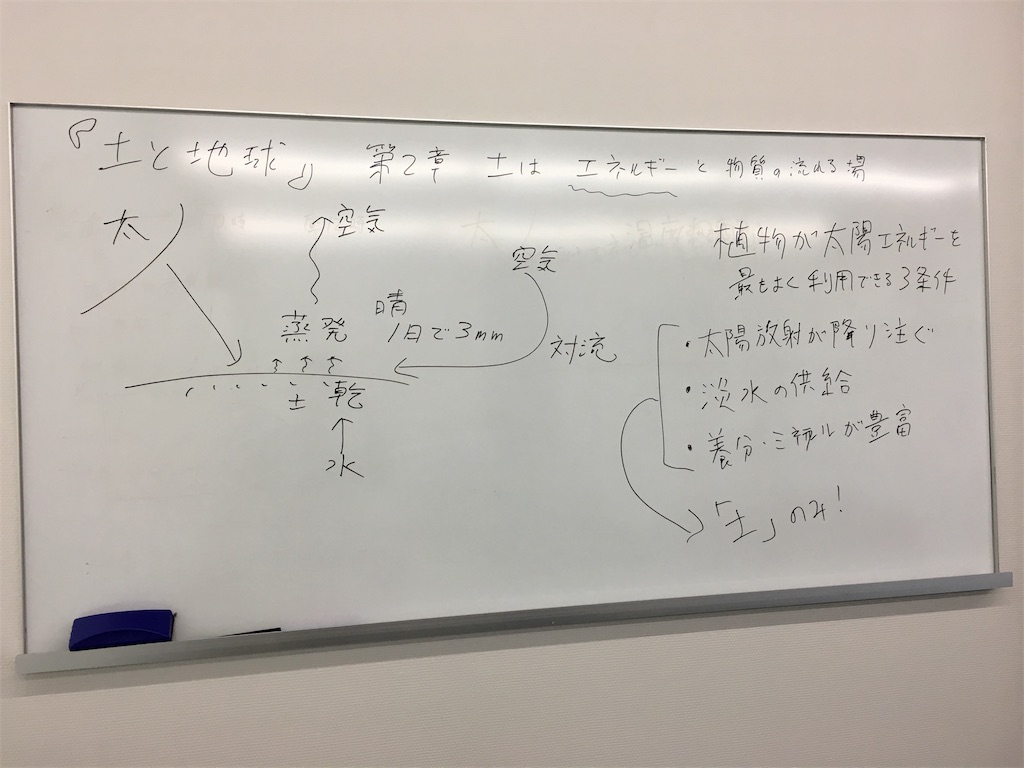 『土と地球』 第2章 土は エネルギーと物質の流れる場
太
空気
蒸発
晴
1日で3mm
土 乾
水
空気
対流
植物が太陽エネルギーを
最もよく利用できる3条件
・太陽放射が降り注ぐ
・淡水の供給
・養分・ミネラルが豊富
「土」のみ!